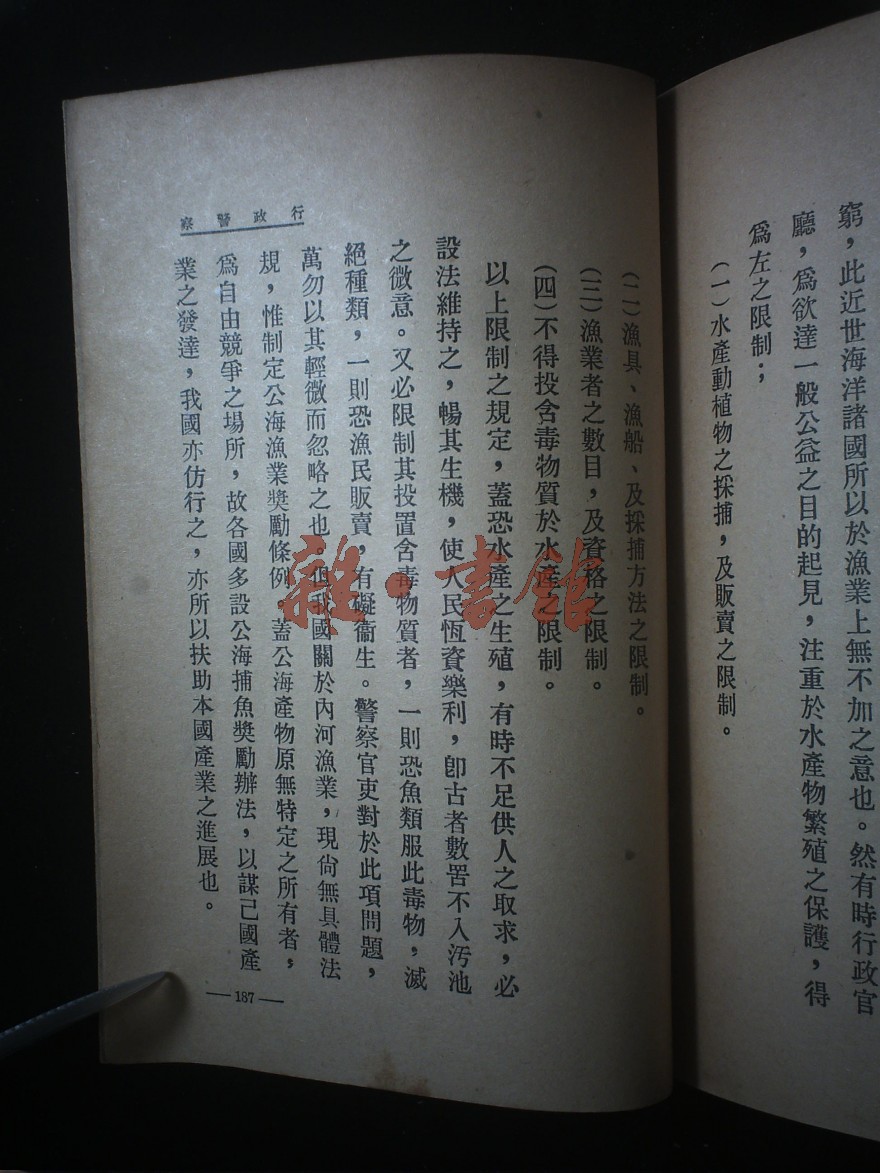 窮，此近世海洋諸國所以於漁業上無不加之意也。然有時行政官
廳，爲欲達一般公益之目的起見，注重於水產物繁殖之保護，得
爲左之限制；
（一）水產動植物之採捕，及販賣之限制。
（二）漁具、漁船、及採捕方法之限制。
（三）漁業者之數目，及資格之限制。
（四）不得投含毒物質於水產之限制。
以上限制之規定，蓋恐水產之生殖，有時不足供人之取求，必
設法維持之，暢其生機，使人民恆資樂利，卽古者數罟不入汚池
之微意。又必限制其投置含毒物質者，一則恐魚類服此毒物，滅
絕種類，一則恐漁民販賣，有礙衞生。警察官吏對於此項問題，
萬勿以其輕微而忽略之也。但我國關於內河漁業，現尙無具體法
規，惟制定公海漁業獎勵條例，蓋公海產物原無特定之所有者，
爲自由競爭之場所，故各國多設公海捕魚獎勵辦法，以謀己國產
業之發達，我國亦仿行之，亦所以扶助本國產業之進展也。
行政警察
—187—
雜·書館